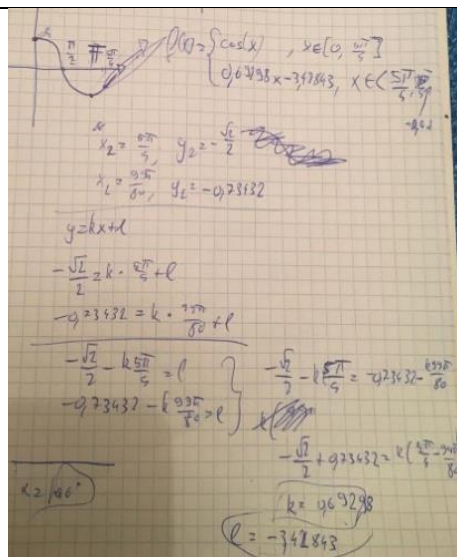 π/2 π 5π/4
f(x)= { cos(x) , x∈[0, 5π/4]
0,69298x-3,42843, x∈(5π/4,
x₂ = 5π/4, y₂ = -√2/2
x₁ = 99π/80, y₁ = -0,73432
y=kx+l
-√2/2 = k · 5π/4 + l
-0,73432 = k · 99π/80 + l
-√2/2 - k 5π/4 = l
-0,73432 - k 99π/80 = l
-√2/2 - k 5π/4 = -0,73432 - k99π/80
-√2/2 + 0,73432 = k( 5π/4 - 99π/80
k = 0,69298
l = -3,42843